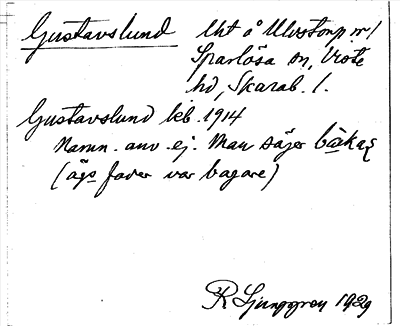 Gustavslund Uht å Ulvstorp nr 1
Sparlösa sn, Viste
hd, Skarab. l.
Gustavslund beb. 1914
Namn. anv. ej. Man säjer
(ägs faver var bagare)
R Ljunggren 1929